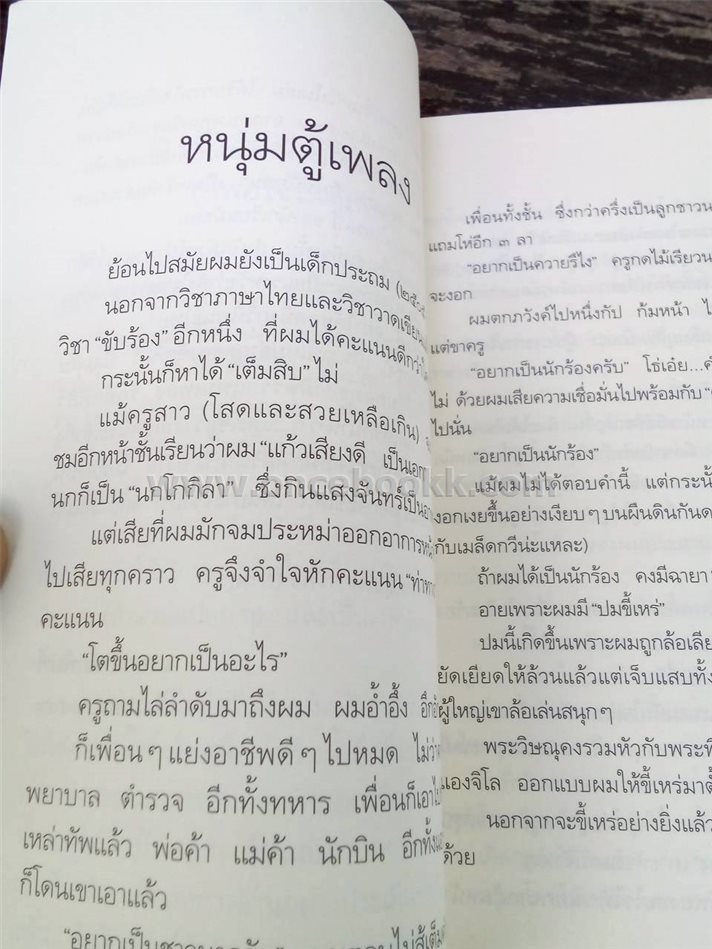 หนุ่มตู้เพลง
ย้อนไปสมัยผมยังเป็นเด็กประถม
นอกจากวิชาภาษาไทยและวิชาวาดเขียน
วิชา “ขับร้อง” อีกหนึ่ง ที่ผมได้คะแนนดีกว่า
กระนั้นก็หาได้ “เต็มสิบ” ไม่
แม้ครูสาว (โสดและสวยเหลือเกิน)
ชมอีกหน้าชั้นเรียนว่าผม “แก้วเสียงดี เป็นเอก
นกก็เป็น “นกโกกิลา” ซึ่งกินแสงจันทร์เป็น
แต่เสียที่ผมมักจมประหม่าออกอาการ
ไปเสียทุกคราว ครูจึงจำใจหักคะแนน
คะแนน
“โตขึ้นอยากเป็นอะไร”
ครูถามไล่ลำดับมาถึงผม ผมอ้ำอึ้ง
ก็เพื่อนๆ แย่งอาชีพดีๆ ไปหมด ไม่ว่า
พยาบาล ตำรวจ อีกทั้งทหาร เพื่อนก็เอาไ
เหล่าทัพแล้ว พ่อค้า แม่ค้า นักบิน อีกทั้ง
ก็โดนเขาเอาแล้ว
เพื่อนทั้งชั้น ซึ่งกว่าครึ่งเป็นลูกชาวน
แถมโห่อีก ๓ ลา
“อยากเป็นควายรึไง” ครูกดไม้เรียวน
จะงอก
ผมตกภวังค์ไปหนึ่งกัป ก้มหน้า ไ
แต่ขาครู
“อยากเป็นนักร้องครับ” โธ่เอ๋ย...
ไม่ ด้วยผมเสียความเชื่อมั่นไปพร้อมกับ
ไปนั่น
“อยากเป็นนักร้อง”
แม้ผมไม่ได้ตอบคำนี้ แต่กระนั้
งอกเงยขึ้นอย่างเงียบๆ บนผืนดินกันด
กับเมล็ดกวีน่ะแหละ)
ถ้าผมได้เป็นนักร้อง คงมีฉายา
อายเพราะผมมี “ปมขี้เหร่”
ปมนี้เกิดขึ้นเพราะผมถูกล้อเลีย
ยัดเยียดให้ล้วนแล้วแต่เจ็บแสบทั้ง
ผู้ใหญ่เขาล้อเล่นสนุกๆ
พระวิษณุคงรวมหัวกับพระพิ
แองจิโล ออกแบบผมให้ขี้เหร่มาตั้
นอกจากจะขี้เหร่อย่างยิ่งแล้ว
ด้วย